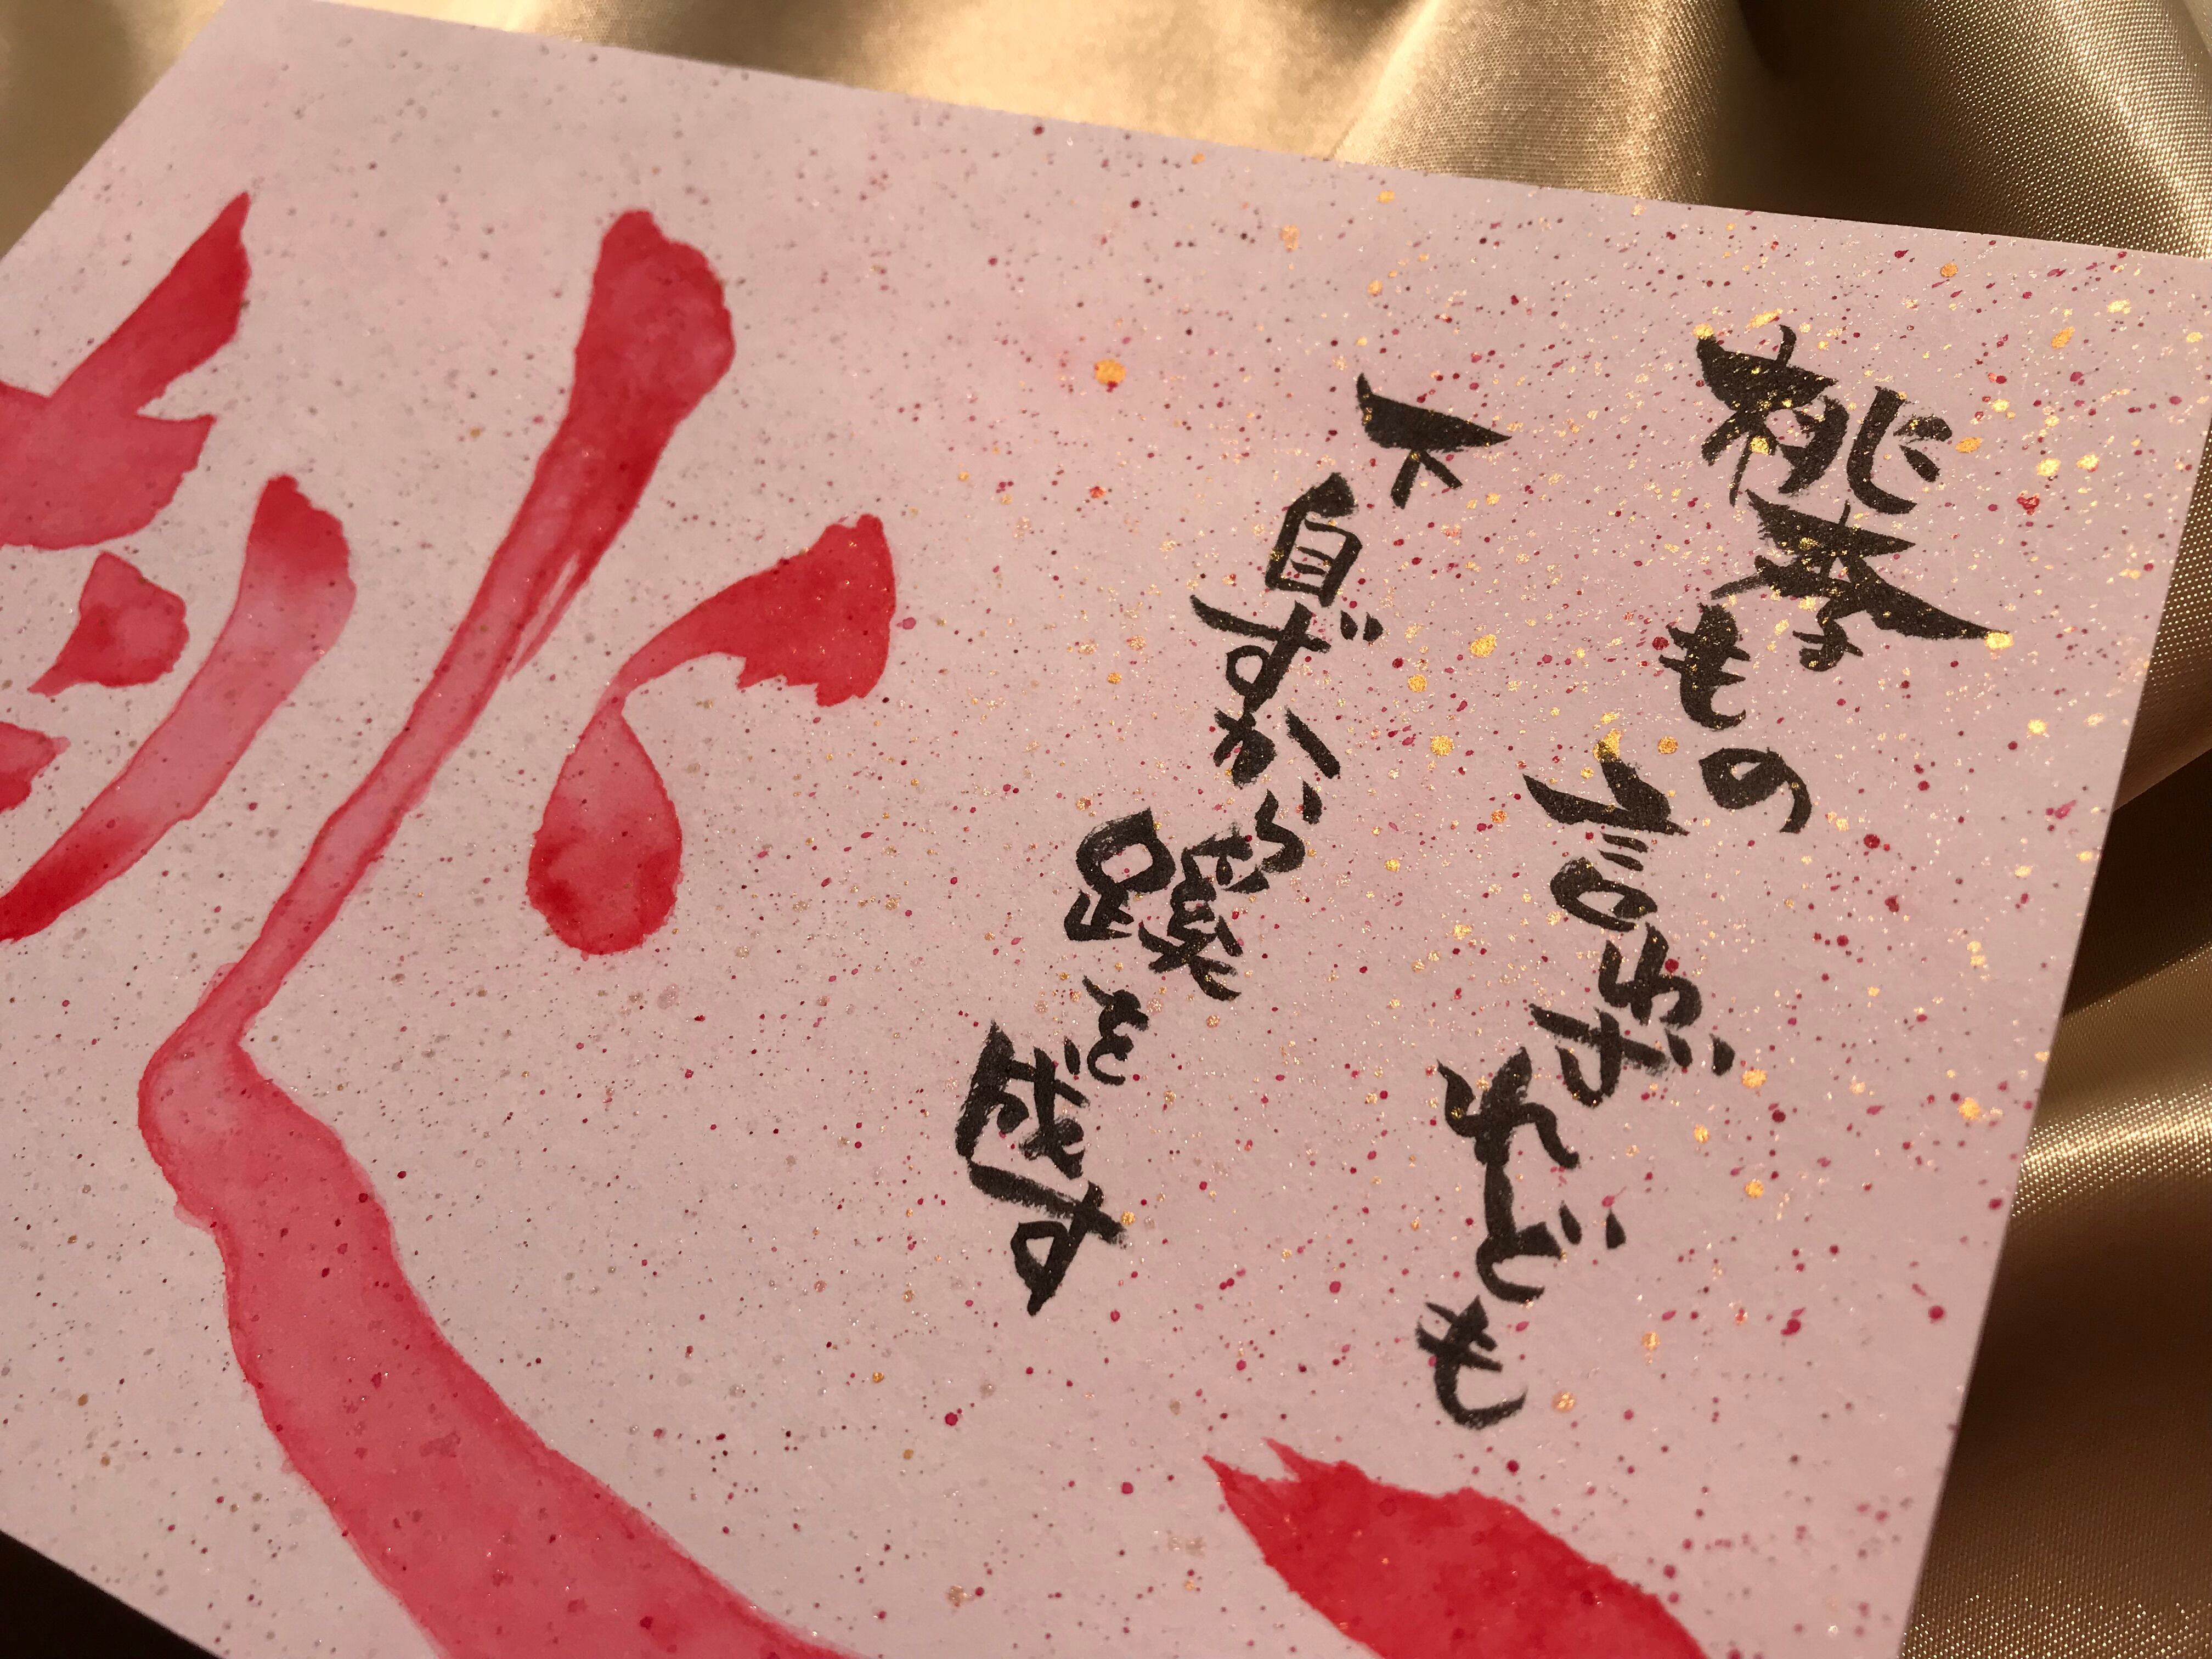 桃李もの言わざれども
下自ずから蹊を成す